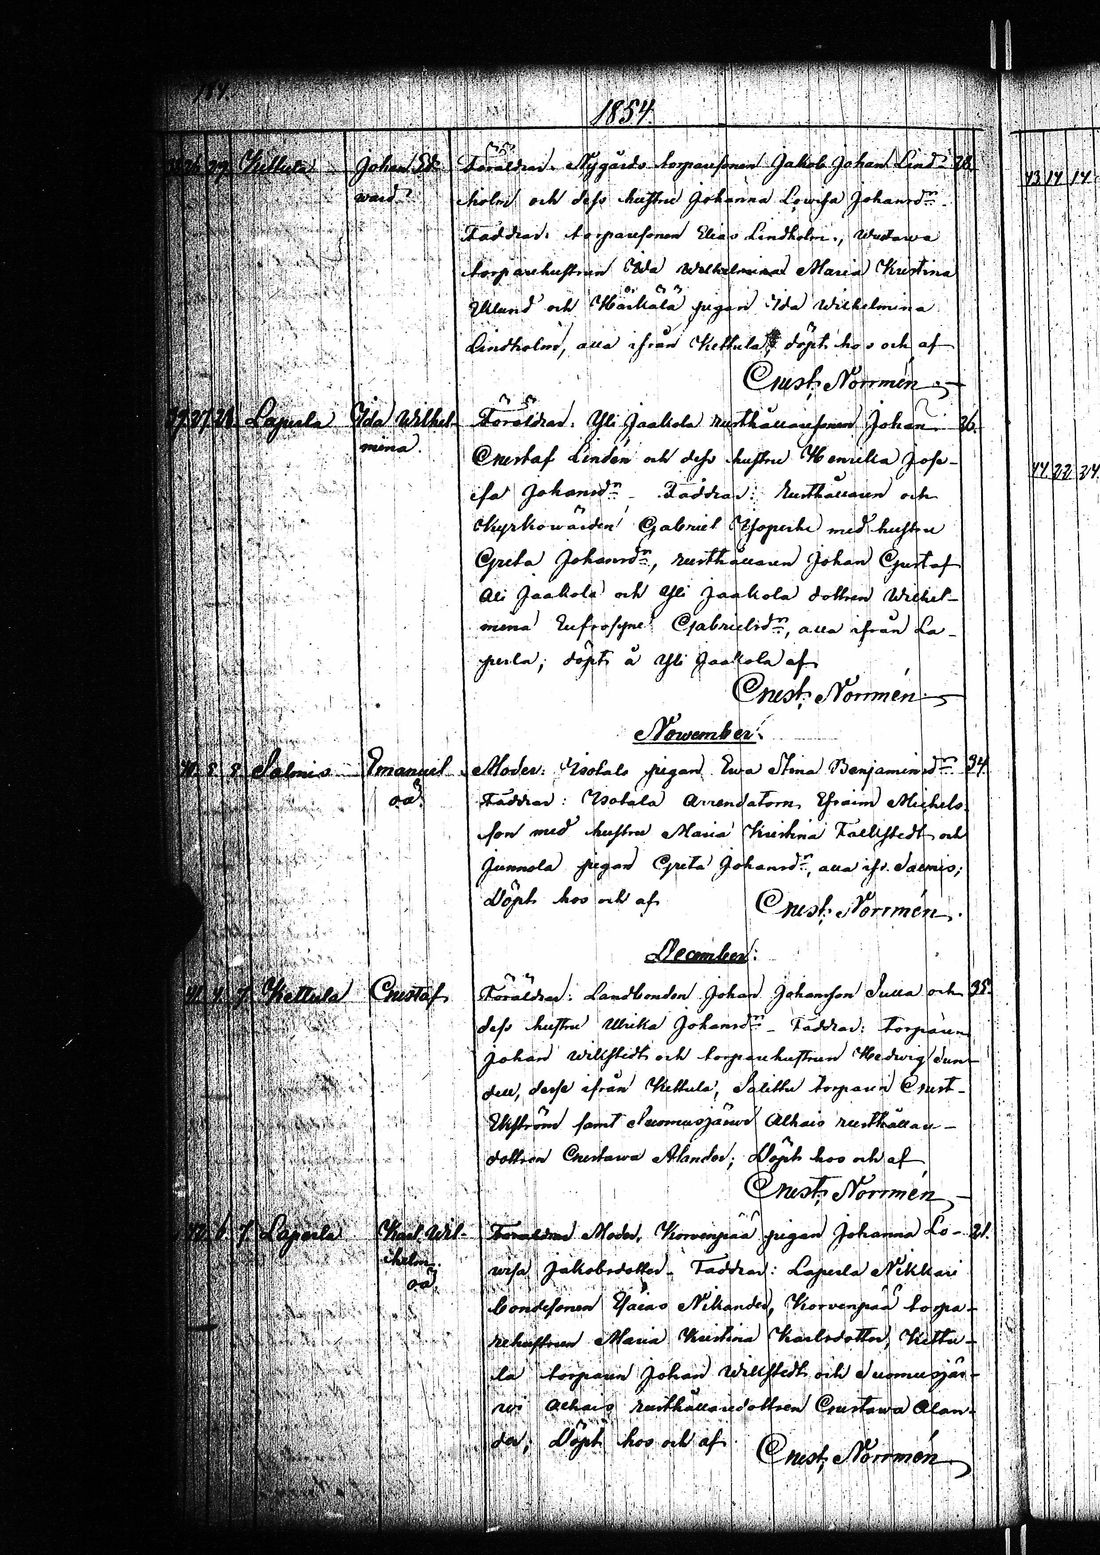 184.
1854.
38. 26. 29. Kettula Johan Ed- Föräldrar: Nygårds torparesonen Jakob Johan Lind- 28.
ward. holm och dess hustru Johanna Lowisa Johansdr.
Faddrar: torparesonen Elias Lindholm, Wustawa
torparehustrun Ida Wilhelmina Maria Kristina
Uklund och Härkälä pigan Ida Wilhelmina
Lindholm, alla ifrån Kettula; döpt hos och af
Gust. Norrmén.
39. 27. 28. Laperla Ida Wilhel- Föräldrar: Yli Jaakola rusthållaresonen Johan 26.
mina. Gustaf Lindén och dess hustru Henrika Jose-
fa Johansdr. Faddrar: Rusthållaren och
Kyrkowärden Gabriel Yoperla med hustru
Greta Johansdr, rusthållaren Johan Gustaf
Ali Jaakola och Yli Jaakola dottren Wilhel-
mina Eufrosyne Gabrielsdr, alla ifrån La-
perla; döpt å Yli Jaakola af
Gust. Norrmén.
November.
40. 5. 8. Salmis Emanuel Moder: Isotalo pigan Ewa Stina Benjaminsdr 34.
oä. Faddrar: Isotalo Arrendatorn Efraim Michels-
son med hustru Maria Kristina Falkstedt och
Junnola pigan Greta Johansdr, alla ifr. Salmis;
Döpt hos och af Gust. Norrmén.
December.
41. 4. 7. Kettula Gustaf Föräldrar: Landbonden Johan Johansson Sulla och 35.
dess hustru Ulrika Johansdr. Faddrar: torparen
Johan Willstedt och torparehustrun Hedwig Sun-
dell, desse ifrån Kettula, Salittu torparen Gust.
Ekström samt Suomusjärwi Alhais rusthållare-
dottren Gustawa Alander; Döpt hos och af
Gust. Norrmén
42. 6. 7. Laperla Karl Wil- Föräldrar Moder, Korvenpää pigan Johanna Lo- 21.
helm. wisa Jakobsdotter. Faddrar: Laperla Nikkari
oä. bondesonen Esaias Nikander, Korvenpää torpa-
rehustrun Maria Kristina Karlsdotter, Kettu-
la torparen Johan Willstedt och Suomusjär-
wi Alhais rusthållaredottren Gustawa Alan-
der; Döpt hos och af Gust. Norrmén
43 14 17
44 22 24